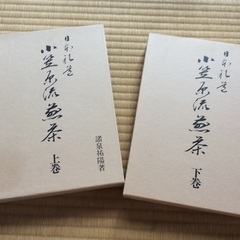 日本礼道
小笠原流煎茶
上巻
諸泉祐陽著
日本礼道
小笠原流煎茶
下巻